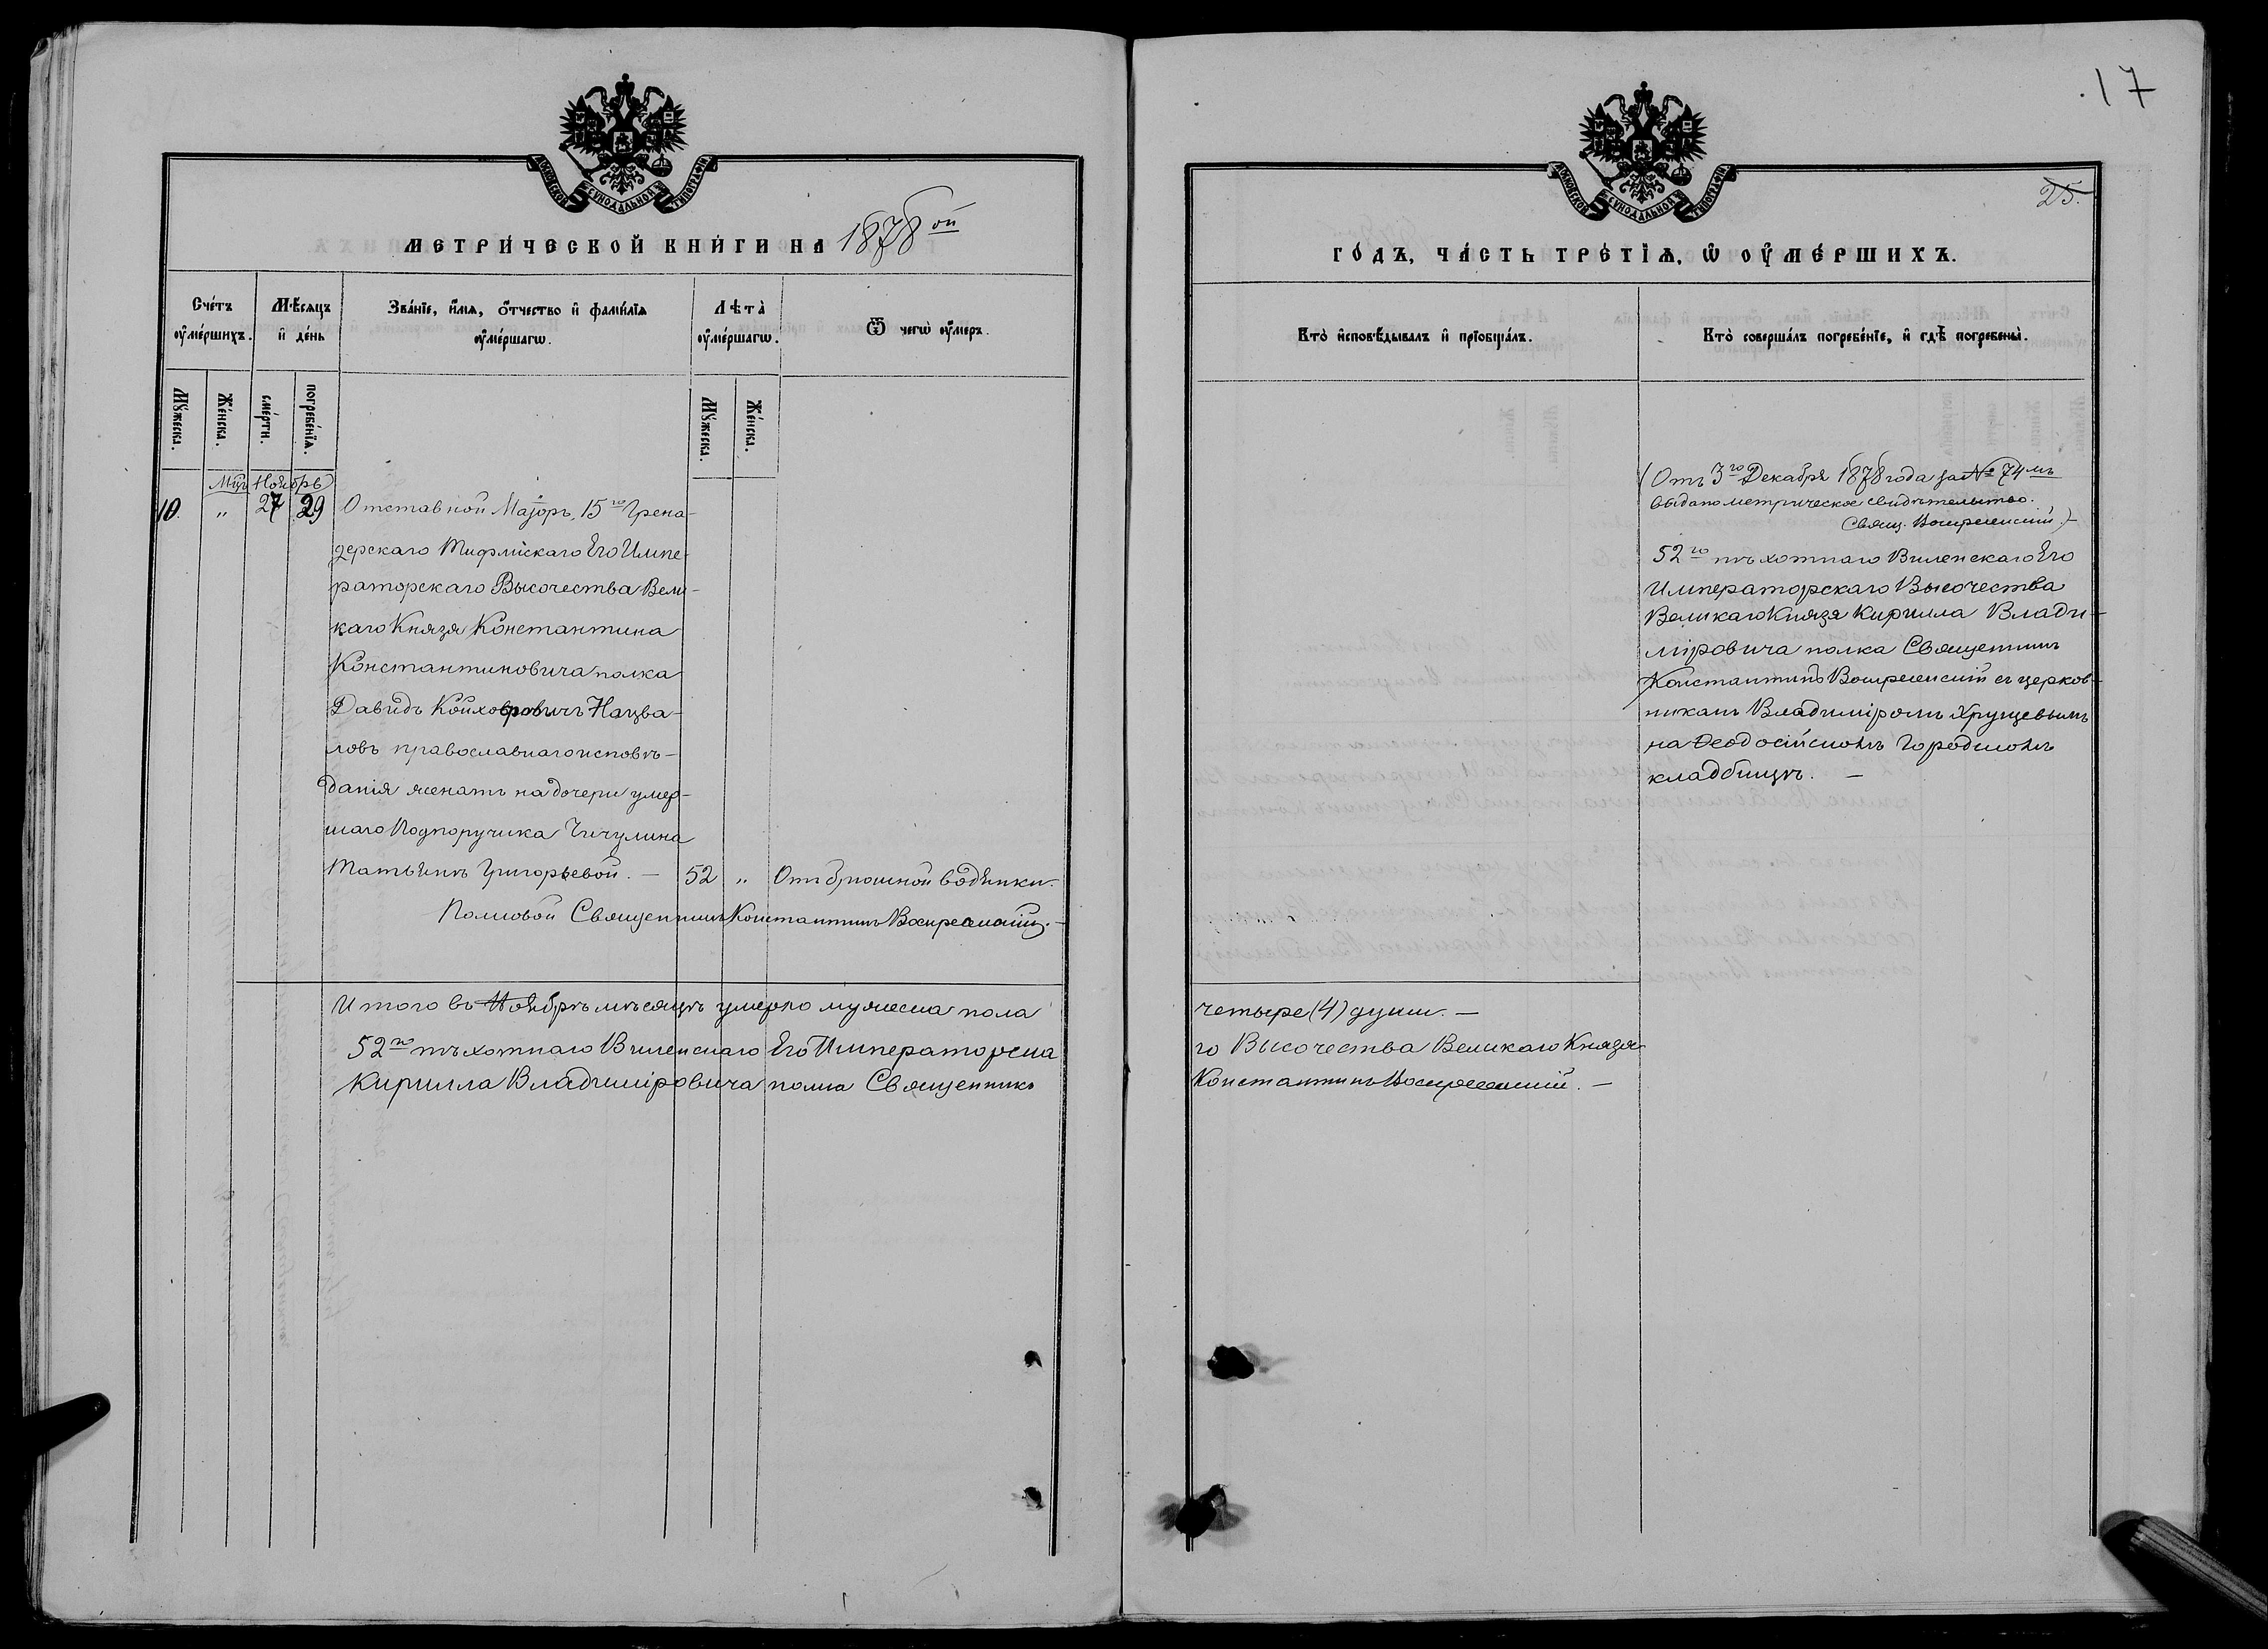 17
25.
МОСКОВСКОЙ СѴНОДАЛЬНОЙ ТИПОГРАФІИ
МЕТРИ́ЧЕСКОЙ КНИ́ГИ НА 1878 ой
Сче́тъ оу҆ме́ршихъ.
Мѣ́сяцъ и҆ де́нь
Зва́нїе, и҆́мя, ѻ҆́тчество и҆ фами́лїя оу҆ме́ршагѡ.
Лѣта̀ оу҆ме́ршагѡ.
Ѿ чегѡ̀ оу҆́меръ.
Мꙋ́жеска.
Же́нска.
сме́рти.
погребе́нїя.
Мꙋ́жеска.
Же́нска.
Мцъ Ноябрь
10. " 27 29 Отставной Маіоръ, 15го Грена-
дерскаго Тифлискаго Его Импе-
раторскаго Высочества Вели-
каго Князя Константина
Константиновича полка
Давидъ Койховровичъ Нацва-
ловъ православнаго исповѣ-
данія женатъ на дочери умер-
шаго Подпоручика Чичулина
Татьянѣ Григорьевой. — 52 " Отъ брюшной водянки.
Полковой Священникъ Константинъ Воскресенскій. —
Итого въ Ноябрѣ мѣсяцѣ умерло мужеска пола
52го пѣхотнаго Виленскаго Его Императорска
Кирилла Владиміровича полка Священникъ
МОСКОВСКОЙ СѴНОДАЛЬНОЙ ТИПОГРАФІИ
ГО́ДЪ, ЧА́СТЬ ТРЕ́ТЇѦ, Ѡ҆ ОУ҆МЕ́РШИХЪ.
Кто̀ и҆сповѣ́дывалъ и҆ прїобща́лъ.
Кто̀ соверша́лъ погребе́нїе, и҆ гдѣ̀ погребены̀.
(Отъ 3го Декабря 1878 года за № 74мъ
выдано метрическое свидѣтельство.
Свящ. Воскресенскій.) —
52го пѣхотнаго Виленскаго Его
Императорскаго Высочества
Великаго Князя Кирилла Влади-
міровича полка Священникъ
Константинъ Воскресенскій съ церков-
никамъ Владиміромъ Хрущевымъ
на Ѳеодосійскомъ Городскомъ
кладбищѣ. —
четыре (4) души. —
го Высочества Великаго Князя
Константинъ Воскресенскій. —